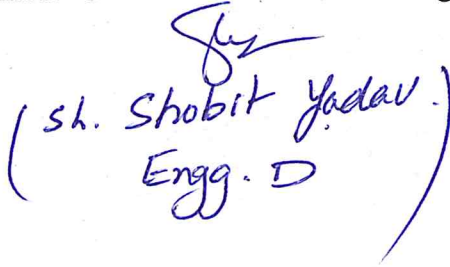 (Sh. Shobit Yadav.)
Engg. D